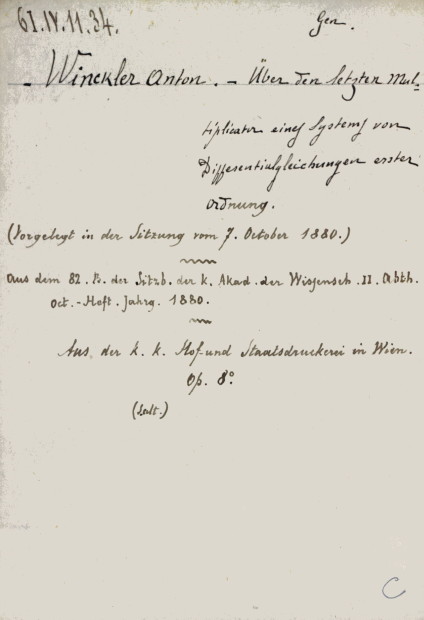 61.IV.11.34.
Gen.
- Winckler Anton. - Über den letzten Mul=
tiplicator eines Systems von
Differentialgleichungen erster
Ordnung.
(Vorgelegt in der Sitzung vom 7. October 1880.)
Aus dem 82. B. der Sitzb. der k. Akad. der Wissensch. II. Abth.
Oct.-Heft. Jahrg. 1880.
Aus der k. k. Hof und Staatsdruckerei in Wien.
Op. 8°.
C